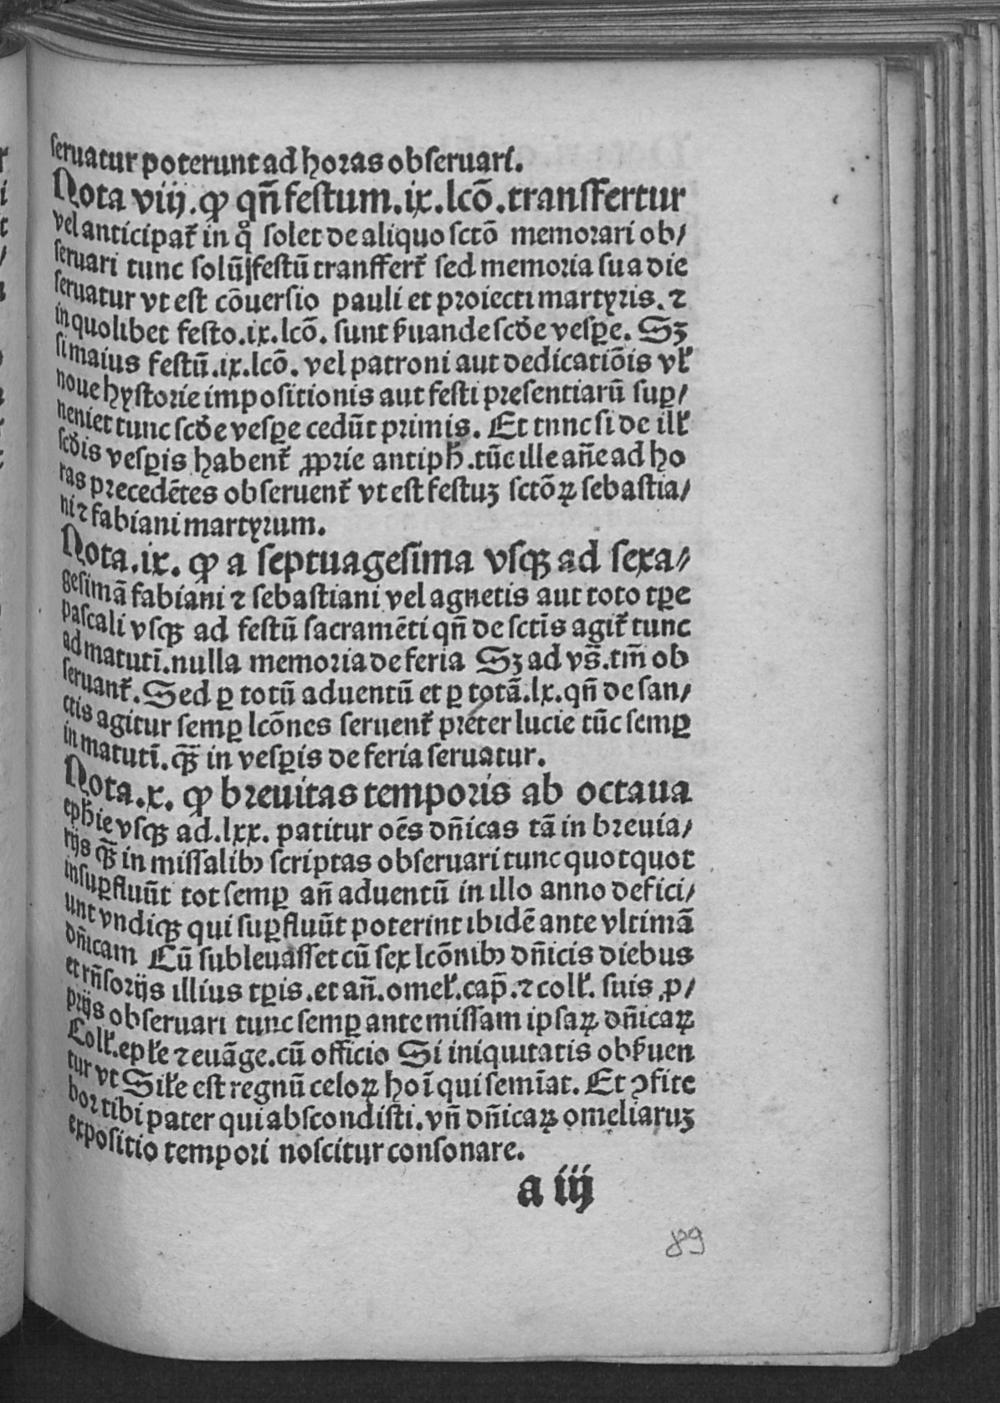 seruatur poterunt ad horas obseruari.
Nota viij. ꝙ qn̄ festum.ix.lcō.transfertur
vel anticipat᷑ in q̊ solet de aliquo sctō memorari ob⸗
seruari tunc solū festū transfert᷑ sed memoria sua die
seruatur vt est cōuersio pauli et proiecti martyris. ⁊
in quolibet festo.ix.lcō. sunt ẜuande scd̓e vesꝑe. Sꝫ
si maius festū.ix.lcō. vel patroni aut dedicatiōis vl̓
noue hystorie impositionis aut festi presentiarū suꝑ⸗
neniet tunc scd̓e vesꝑe cedūt primis. Et tnnc si de ill̓
scd̓is vesꝑis habent᷑ ꝓprie antiph̓.tūc ille añe ad ho
ras precedētes obseruent᷑ vt est festuꝫ sctōꝝ sebastia⸗
ni ⁊ fabiani martyrum.
Nota.ix. ꝙ a septuagesima vsqꝫ ad sexa⸗
gesimā fabiani ⁊ sebastiani vel agnetis aut toto tꝑe
pascali vsqꝫ ad festū sacramēti qn̄ de sctīs agit᷑ tunc
ad matutī.nulla memoria de feria Sꝫ ad vs̄.tm̄ ob
seruant᷑. Sed ꝑ totū aduentū et ꝑ totā.lx.qn̄ de san⸗
ctis agitur semꝑ lcōnes seruent᷑ preter lucie tūc semꝑ
in matutī.qꝫ̄ in vesꝑis de feria seruatur.
Nota.x. ꝙ breuitas temporis ab octaua
eph̓ie vsqꝫ ad.lxx. patitur oēs dn̄icas tā in breuia⸗
rijs qꝫ̄ in missalibꝰ scriptas obseruari tunc quotquot
insuꝑfluūt tot semꝑ an̄ aduentū in illo anno defici⸗
unt vndiqꝫ qui suꝑfluūt poterint ibidē ante vltimā
dn̄icam Cū subleuasset cū sex lcōnibꝰ dn̄icis diebus
et rn̄sorijs illius tꝑis.et an̄.omel̓.cap̄.⁊ coll̓. suis ꝓ⸗
prijs obseruari tunc semꝑ ante missam ipsaꝝ dn̄icaꝝ
Coll̓.epl̓e ⁊ euāge.cū officio Si iniquitatis obẜuen
tur vt Sil̓e est regnū celoꝝ hoī qui semīat. Et ꝯfite
bor tibi pater qui abscondisti.vn̄ dn̄icaꝝ omeliaruꝫ
expositio tempori noscitur consonare.
a iij
89